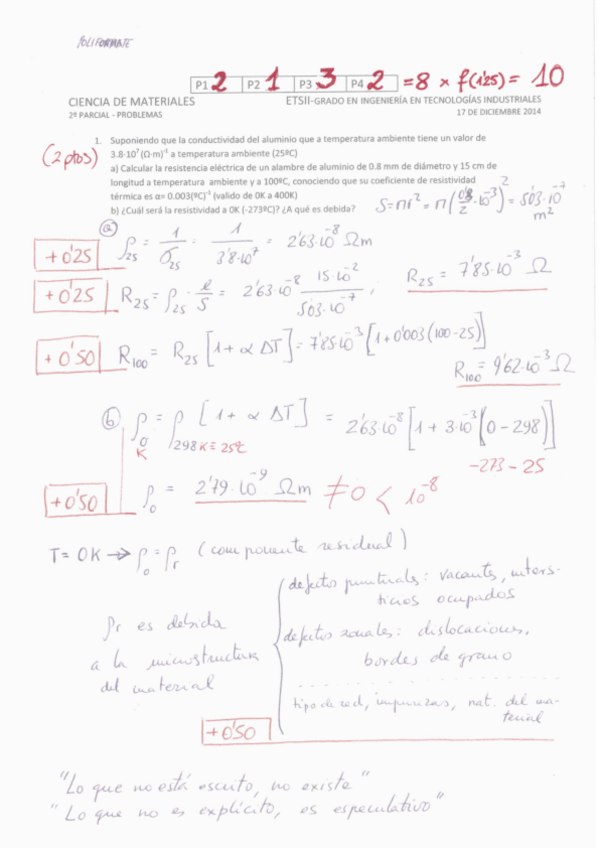 POLIFORMATE
P1 2 P2 1 P3 3 P4 2 = 8 x f(1'25) = 10
CIENCIA DE MATERIALES ETSII-GRADO EN INGENIERÍA EN TECNOLOGÍAS INDUSTRIALES
2º PARCIAL - PROBLEMAS 17 DE DICIEMBRE 2014
(2 ptos)
1. Suponiendo que la conductividad del aluminio que a temperatura ambiente tiene un valor de
3.8·10⁷(Ω·m)⁻¹ a temperatura ambiente (25ºC)
a) Calcular la resistencia eléctrica de un alambre de aluminio de 0.8 mm de diámetro y 15 cm de
longitud a temperatura ambiente y a 100ºC, conociendo que su coeficiente de resistividad
térmica es α= 0.003(ºC)⁻¹ (valido de 0K a 400K)
b) ¿Cuál será la resistividad a 0K (-273ºC)? ¿A qué es debida?
S = πr² = π(0'8/2 · 10⁻³)² = 5'03·10⁻⁷ m²
a
+0'25 ρ₂₅ = 1/σ₂₅ = 1/3'8·10⁷ = 2'63·10⁻⁸ Ωm
+0'25 R₂₅ = ρ₂₅ · e/S = 2'63·10⁻⁸ 15·10⁻²/5'03·10⁻⁷ , R₂₅ = 7'85·10⁻³ Ω
+0'50 R₁₀₀ = R₂₅ [1 + α ΔT] = 7'85·10⁻³ [1+0'003 (100-25)]
R₁₀₀ = 9'62·10⁻³ Ω
b ρ₀ = ρ₂₉₈ [1 + α ΔT] = 2'63·10⁻⁸ [1 + 3·10⁻³ (0 - 298)]
K K = 25ºC -273 - 25
+0'50 ρ₀ = 2'79·10⁻⁹ Ωm ≠ 0 < 10⁻⁸
T = 0K → ρ₀ = ρr (componente residual)
ρr es debida
a la microstructura
del material
defectos puntuales: vacantes, inters-
ticios ocupados
defectos zonales: dislocaciones,
bordes de grano
tipo de red, impurezas, nat. del ma-
terial
+0'50
"Lo que no está escrito, no existe"
"Lo que no es explícito, es especulativo"